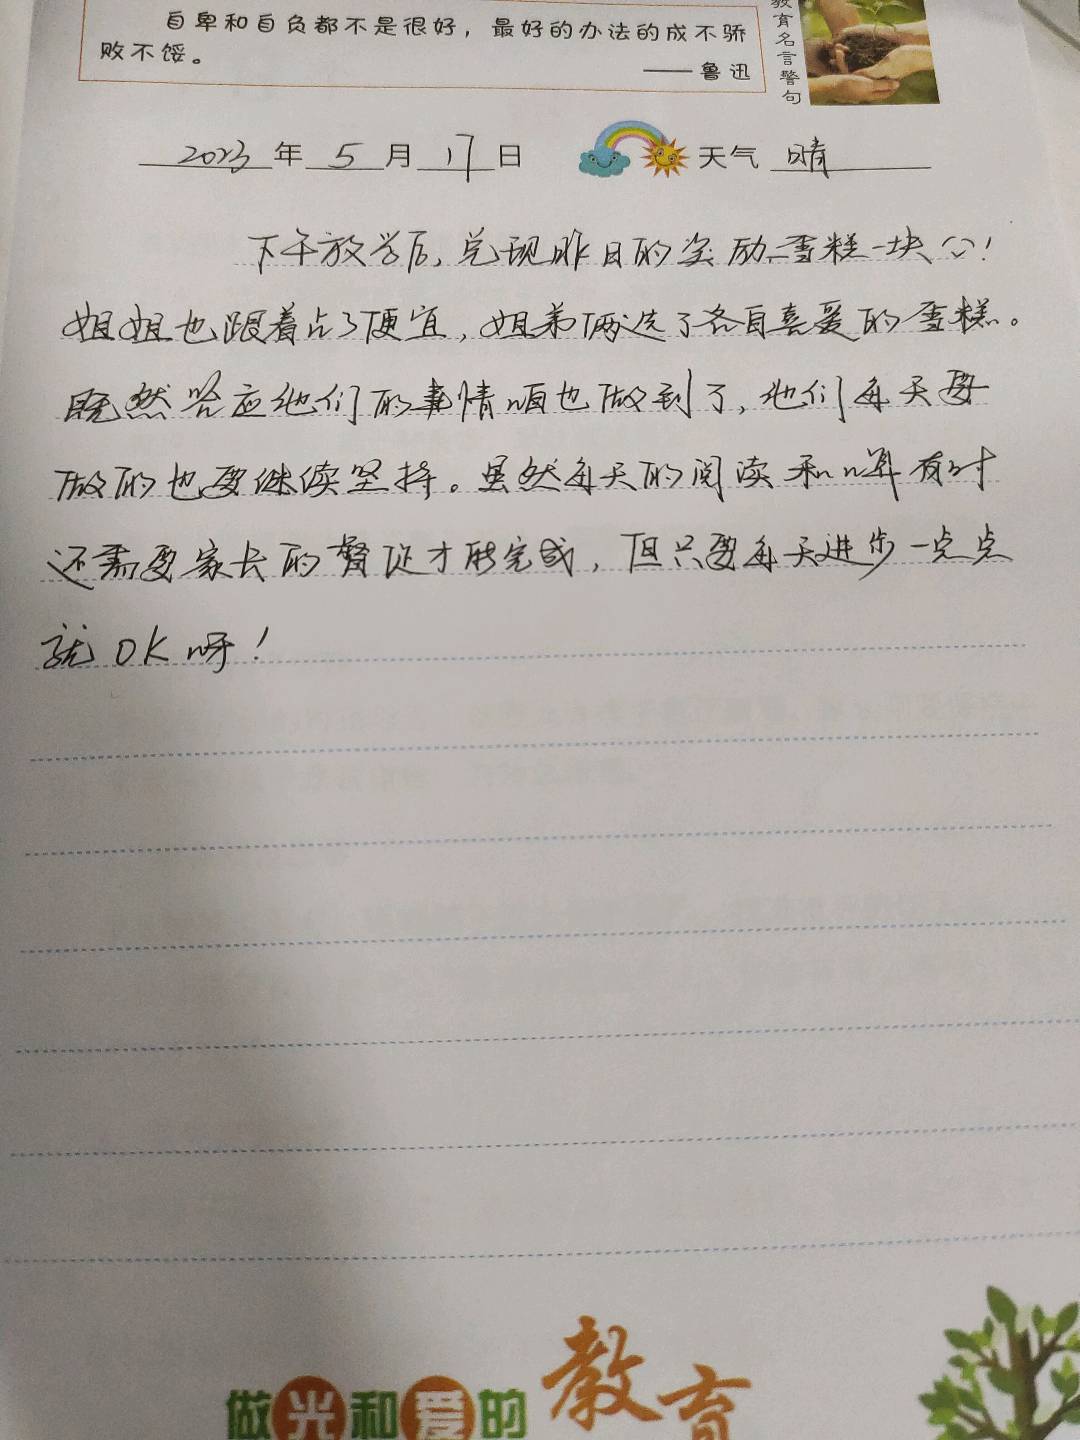 自卑和自负都不是很好，最好的办法的成不骄
败不馁。
——鲁迅
教育名言警句
2023年5月17日 天气 晴
下午放学后，兑现昨日的奖励雪糕一块！
姐姐也跟着占了便宜，姐弟俩选了各自喜爱的雪糕。
既然答应他们的事情咱也做到了，他们每天要
做的也要继续坚持。虽然每天的阅读和口算有时
还需要家长的督促才能完成，但只要每天进步一点点
就OK呀！
做光和爱的教育